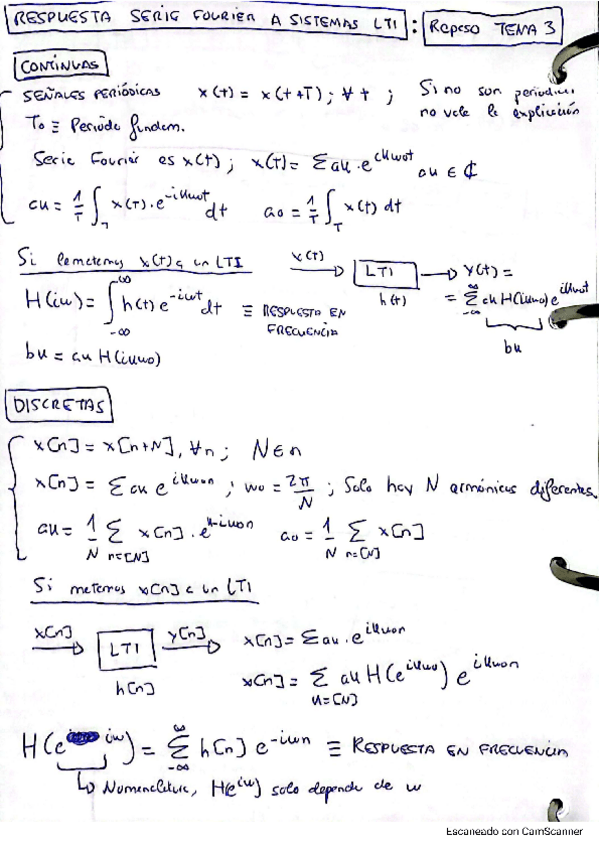 RESPUESTA SERIE FOURIER A SISTEMAS LTI : Repaso TEMA 3
CONTINUAS
SEÑALES PERIÓDICAS x(t) = x(t+T) ; ∀t ; Si no son periódicas
no vale la explicación
To ≡ Periodo fundam.
Serie Fourier es x(t) ; x(t) = Σ ak · e^ikwot ak ∈ ₵
ak = 1/T ∫_T x(t) · e^-ikwot dt ao = 1/T ∫_T x(t) dt
Si le metemos x(t) a un LTI x(t) → LTI → y(t) =
h(t) = Σ_-∞^∞ ak H(ikwo) e^ikwot
bk
H(iw) = ∫_-∞^∞ h(t) e^-iwt dt ≡ RESPUESTA EN
FRECUENCIA
bk = ak H(ikwo)
DISCRETAS
x[n] = x[n+N], ∀n ; N ∈ n
x[n] = Σ ak e^ikwon ; wo = 2π/N ; Solo hay N armónicos diferentes.
ak = 1/N Σ_n=[N] x[n] · e^k-iwon ao = 1/N Σ_n=[N] x[n]
Si metemos x[n] a un LTI
x[n] → LTI → y[n] x[n] = Σ ak · e^ikwon
h[n] x[n] = Σ_k=[N] ak H(e^ikwo) e^ikwon
H(e^iw) = Σ_-∞^∞ h[n] e^-iwn ≡ RESPUESTA EN FRECUENCIA
↳ Nomenclatura, H(e^iw) solo depende de w
Escaneado con CamScanner